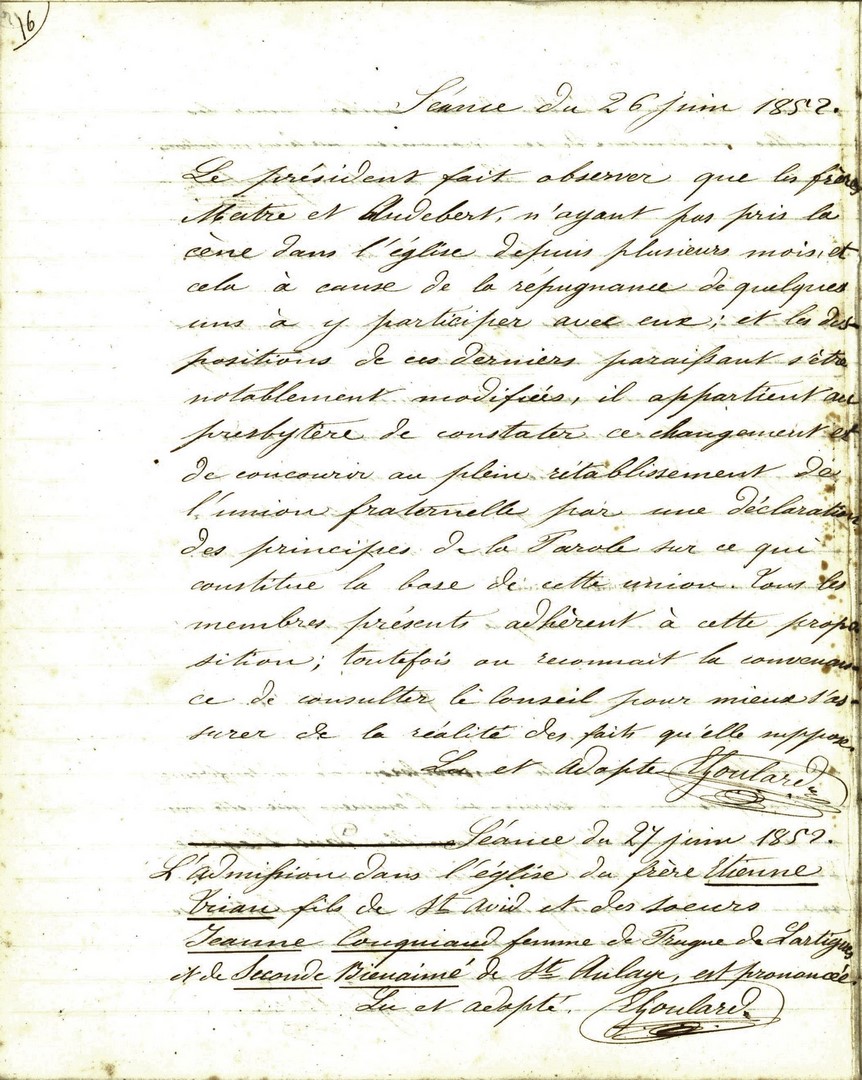 16
Séance du 26 juin 1852.
Le président fait observer que les frères
Matre et Audebert, n'ayant pas pris la
cène dans l'église depuis plusieurs mois, et
cela à cause de la répugnance de quelques
uns à y participer avec eux; et les dis-
positions de ces derniers paraissant s'être
notablement modifiées, il appartient au
presbytère de constater ce changement et
de concourir au plein rétablissement de
l'union fraternelle par une déclaration
des principes de la Parole sur ce qui
constitue la base de cette union. Tous les
membres présents adhèrent à cette propo
sition; toutefois on reconnait la convenan-
ce de consulter le Conseil pour mieux s'as-
surer de la réalité des faits qu'elle suppose.
Lu et adopté Goulard
Séance du 27 juin 1852.
L'admission dans l'église du frère Etienne
Trian fils de St Avid et des soeurs
Jeanne Couquiaud femme de Prugne de Lartigues
et de Seconde Bienaimé de Ste Aulaye, est prononcée.
Lu et adopté. Goulard